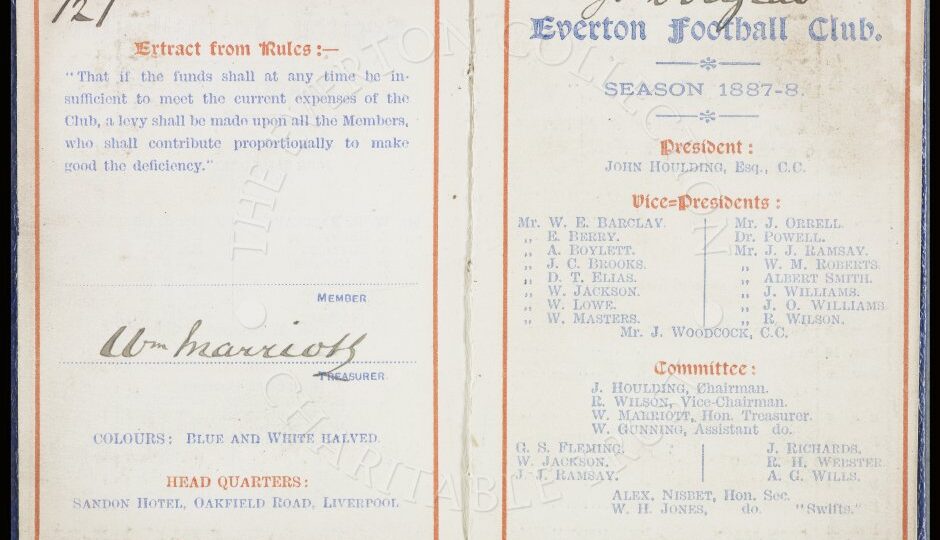 121
Extract from Rules:—
"That if the funds shall at any time be in-
sufficient to meet the current expenses of the
Club, a levy shall be made upon all the Members,
who shall contribute proportionally to make
good the deficiency."
MEMBER
Wm Marriott
TREASURER.
COLOURS: BLUE AND WHITE HALVED.
HEAD QUARTERS:
SANDON HOTEL, OAKFIELD ROAD, LIVERPOOL.
Everton Football Club.
SEASON 1887-8.
President:
JOHN HOULDING, Esq., C.C.
Vice=Presidents:
Mr. W. E. BARCLAY.
„ E. BERRY.
„ A. BOYLETT.
„ J. C. BROOKS.
„ D. T. ELIAS.
„ W. JACKSON.
„ W. LOWE.
„ W. MASTERS.
Mr. J. ORRELL.
Dr. POWELL.
Mr. J. J. RAMSAY.
„ W. M. ROBERTS.
„ ALBERT SMITH.
„ J. WILLIAMS.
„ J. O. WILLIAMS
„ R. WILSON.
Mr. J. WOODCOCK, C.C.
Committee:
J. HOULDING, Chairman.
R. WILSON, Vice-Chairman.
W. MARRIOTT, Hon. Treasurer.
W. GUNNING, Assistant do.
G. S. FLEMING.
W. JACKSON.
J. J. RAMSAY.
J. RICHARDS.
R. H. WEBSTER.
A. G. WILLS.
ALEX. NISBET, Hon. Sec.
W. H. JONES, do. "Swifts."
THE EVERTON COLLECTION
CHARITABLE TRUST